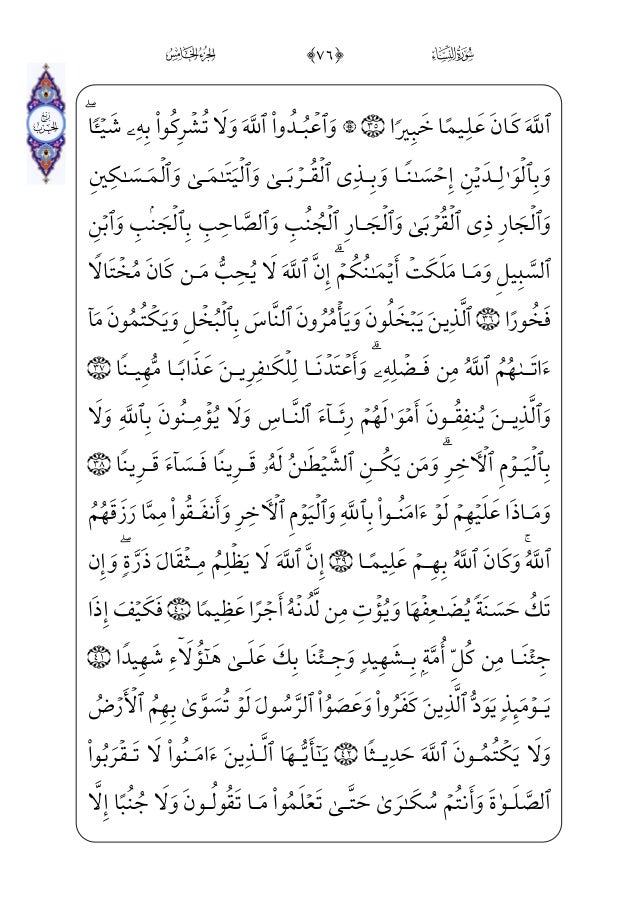 سُورَةُ النِّسَاء ﴿٧٦﴾ الجُزءُ الخَامِسُ
رُبْع
الحِزب
ٱللَّهَ كَانَ عَلِيمًا خَبِيرًا ٣٥ ۞ وَٱعۡبُدُواْ ٱللَّهَ وَلَا تُشۡرِكُواْ بِهِۦ شَيۡـًٔاۖ
وَبِٱلۡوَٰلِدَيۡنِ إِحۡسَٰنًا وَبِذِى ٱلۡقُرۡبَىٰ وَٱلۡيَتَٰمَىٰ وَٱلۡمَسَٰكِينِ
وَٱلۡجَارِ ذِى ٱلۡقُرۡبَىٰ وَٱلۡجَارِ ٱلۡجُنُبِ وَٱلصَّاحِبِ بِٱلۡجَنۢبِ وَٱبۡنِ
ٱلسَّبِيلِ وَمَا مَلَكَتۡ أَيۡمَٰنُكُمۡۗ إِنَّ ٱللَّهَ لَا يُحِبُّ مَن كَانَ مُخۡتَالًا
فَخُورًا ٣٦ ٱلَّذِينَ يَبۡخَلُونَ وَيَأۡمُرُونَ ٱلنَّاسَ بِٱلۡبُخۡلِ وَيَكۡتُمُونَ مَآ
ءَاتَىٰهُمُ ٱللَّهُ مِن فَضۡلِهِۦۗ وَأَعۡتَدۡنَا لِلۡكَٰفِرِينَ عَذَابًا مُّهِينًا ٣٧
وَٱلَّذِينَ يُنفِقُونَ أَمۡوَٰلَهُمۡ رِئَآءَ ٱلنَّاسِ وَلَا يُؤۡمِنُونَ بِٱللَّهِ وَلَا
بِٱلۡيَوۡمِ ٱلۡأٓخِرِۗ وَمَن يَكُنِ ٱلشَّيۡطَٰنُ لَهُۥ قَرِينًا فَسَآءَ قَرِينًا ٣٨
وَمَاذَا عَلَيۡهِمۡ لَوۡ ءَامَنُواْ بِٱللَّهِ وَٱلۡيَوۡمِ ٱلۡأٓخِرِ وَأَنفَقُواْ مِمَّا رَزَقَهُمُ
ٱللَّهُۚ وَكَانَ ٱللَّهُ بِهِمۡ عَلِيمًا ٣٩ إِنَّ ٱللَّهَ لَا يَظۡلِمُ مِثۡقَالَ ذَرَّةٍۖ وَإِن
تَكُ حَسَنَةً يُضَٰعِفۡهَا وَيُؤۡتِ مِن لَّدُنۡهُ أَجۡرًا عَظِيمًا ٤٠ فَكَيۡفَ إِذَا
جِئۡنَا مِن كُلِّ أُمَّةِۭ بِشَهِيدٍ وَجِئۡنَا بِكَ عَلَىٰ هَٰٓؤُلَآءِ شَهِيدًا ٤١
يَوۡمَئِذٍ يَوَدُّ ٱلَّذِينَ كَفَرُواْ وَعَصَوُاْ ٱلرَّسُولَ لَوۡ تُسَوَّىٰ بِهِمُ ٱلۡأَرۡضُ
وَلَا يَكۡتُمُونَ ٱللَّهَ حَدِيثًا ٤٢ يَٰٓأَيُّهَا ٱلَّذِينَ ءَامَنُواْ لَا تَقۡرَبُواْ
ٱلصَّلَوٰةَ وَأَنتُمۡ سُكَٰرَىٰ حَتَّىٰ تَعۡلَمُواْ مَا تَقُولُونَ وَلَا جُنُبًا إِلَّا